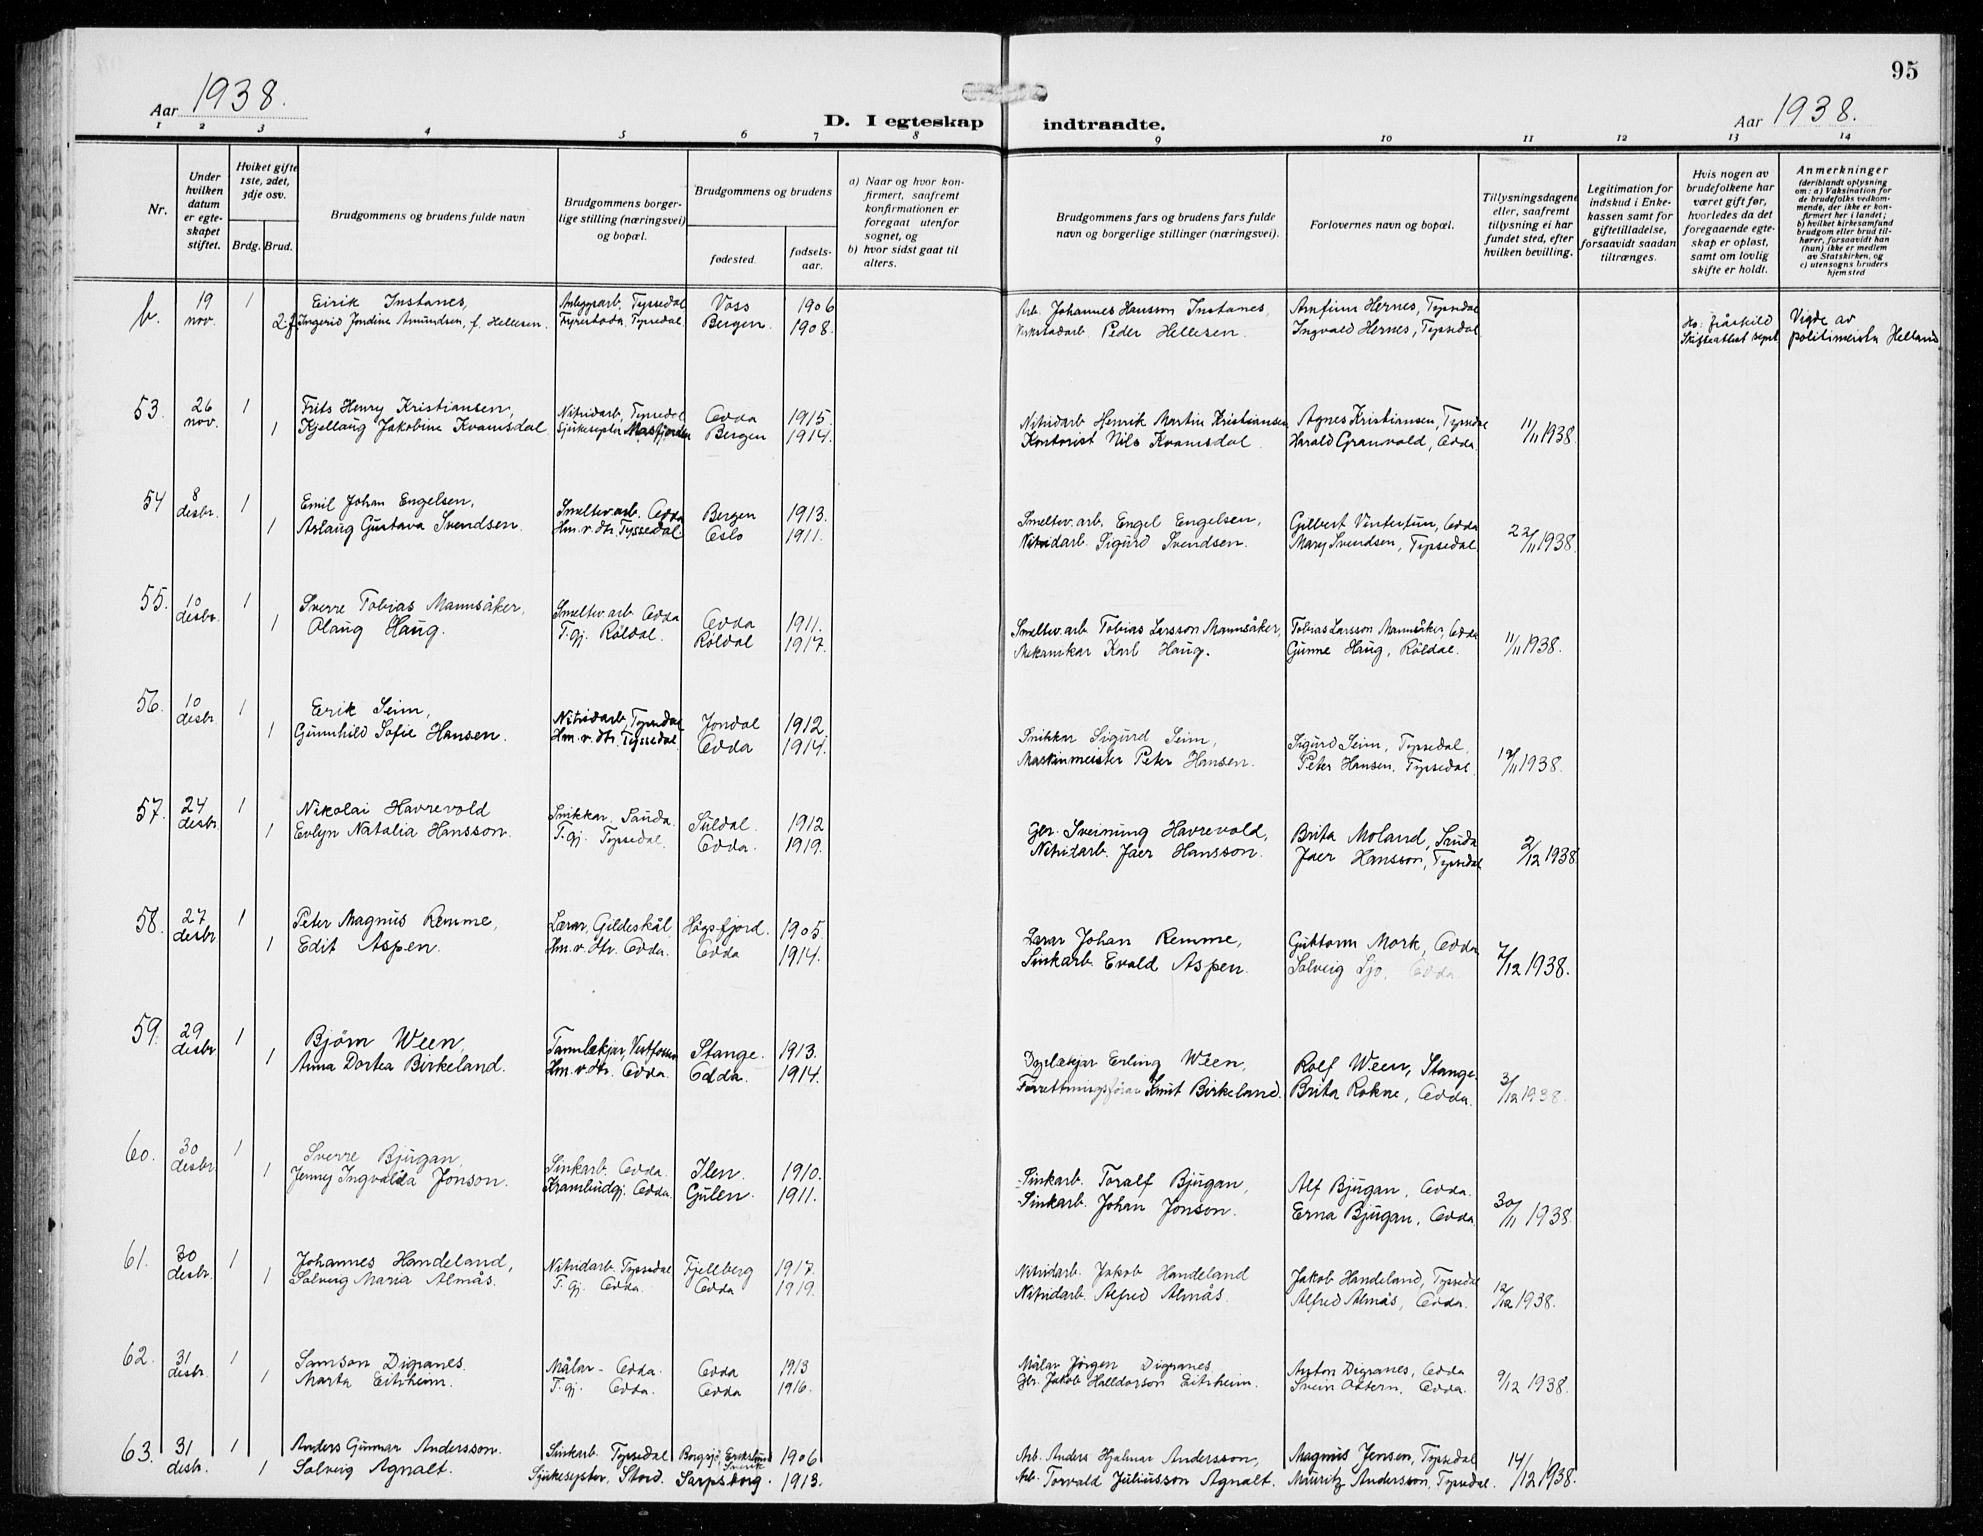 95
Aar 1938.
D. I egteskap indtraadte.
Aar 1938.
1 2 3 4 5 6 7 8 9 10 11 12 13 14
Nr.
Under hvilken datum er egteskapet stiftet.
Hviket gifte 1ste, 2det, 3dje osv.
Brdg. Brud.
Brudgommens og brudens fulde navn
Brudgommens borgerlige stilling (næringsvei) og bopæl.
Brudgommens og brudens
fødested. fødselsaar.
a) Naar og hvor konfirmert, saafremt konfirmationen er foregaat utenfor sognet, og
b) hvor sidst gaat til alters.
Brudgommens fars og brudens fars fulde navn og borgerlige stillinger (næringsvei).
Forlovernes navn og bopæl.
Tillysningsdagene eller, saafremt tillysning ei har fundet sted, efter hvilken bevilling.
Legitimation for indskud i Enkekassen samt for giftetilladelse, forsaavidt saadan tiltrænges.
Hvis nogen av brudefolkene har været gift før, hvorledes da det foregaaende egteskap er opløst, samt om lovlig skifte er holdt.
Anmerkninger (deriblandt oplysning om: a) Vaksination for de brudefolks vedkommende, der ikke er konfirmert her i landet; b) hvilket kirkesamfund brudgom eller brud tilhører, forsaavidt han (hun) ikke er medlem av Statskirken, og c) utensogns bruders hjemsted
b. 19 nov. 1 Eirik Instanes, Anleggsarb. Tyssedal Voss 1906 Arb. Johannes Hansson Instanes, Arnfinn Hernes, Tyssedal
2.g Ingerid Jondine Amundsen, f. Hellesen. Tyssedal Bergen. 1908. Verkstadarb. Peder Hellesen. Ingvald Hernes, Tyssedal Ho: fråskild Skifteattest Vigde av politimeister Helland
53. 26 nov. 1 Frits Henry Kristiansen, Nitridarb, Tyssedal Odda 1915. Nitridarb Henrik Martin Kristiansen Agnes Kristiansen, Tyssedal 11/11 1938.
1 Kjellaug Jakobine Kvamsdal Sjukesyster Masfjorden Bergen 1914. Kontorist Nils Kvamsdal Harald Granvold, Odda.
54 8 desbr. 1 Emil Johan Engelsen, Smeltev. arb. Odda Bergen 1913. Smeltev. arb. Engel Engelsen, Gilbert Vintertun, Odda 22/11 1938.
1 Aslaug Gustava Svendsen. Hm. v. dtr. Tyssedal. Oslo 1911. Nitridarb. Sigurd Svendsen. Mary Svendsen, Tyssedal
55. 10 desbr. 1 Sverre Tobias Mannsåker, Smeltev. arb. Odda Odda 1911. Smeltev. arb Tobias Larsson Mannsåker, Tobias Larsson Mannsåker, Odda 11/11 1938.
1 Olaug Haug. T. gj. Röldal. Röldal 1917. Mekanikar Karl Haug. Gunne Haug, Röldal.
56. 10 desbr 1 Erik Seim, Nitridarb, Tyssedal Jondal 1912 Snikkar Sigurd Seim, Sigurd Seim, Tyssedal, 19/11 1938.
1 Gunnhild Sofie Hansen. Hm. v. dtr. Tyssedal Odda 1914. Maskinmeister Peter Hansen. Peter Hansen, Tyssedal
57. 24 desbr. 1 Nikolai Havrevold Snikkar, Sauda. Suldal. 1912 Gbr. Sveinung Havrevold, Brita Moland, Sauda 2/12 1938
1 Evlyn Natalia Hansson. T. gj. Tyssedal. Odda. 1919. Nitridarb. Jaer Hansson. Jaer Hansson, Tyssedal
58. 27 desbr 1 Peter Magnus Remme, Lærar, Gildeskål Högsfjord. 1905. Lærar Johan Remme, Guttorm Mork, Odda 7/12 1938.
1 Edit Aspen. Hm. v. dtr. Odda. Odda 1914. Sinkarb. Evald Aspen. Solveig Sjo, Odda
59. 29 desbr 1 Bjørn Ween, Tannlækjar, Vestfossen Stange. 1913. Dyrlækjar Erling Ween, Rolf Ween, Stange. 3/12 1938.
1 Anna Dortea Birkeland. Hm. v. dtr. Odda. Odda. 1914. Forrettningsförar Knut Birkeland. Brita Rokne, Odda.
60. 30 desbr 1 Sverre Bjugan, Sinkarb. Odda. Ilen. 1910. Sinkarb. Toralf Bjugan, Alf Bjugan, Odda. 30/11 1938.
1 Jenney Ingvalda Jonson. Krambudgj. Odda. Gulen. 1911. Sinkarb. Johan Jonson. Erna Bjugan, Odda.
61. 30 desbr. 1 Johannes Handeland, Nitridarb. Tyssedal Fjellberg 1917. Nitridarb. Jakob Handeland Jakob Handeland, Tyssedal 12/12 1938.
1 Solveig Maria Almås. T. gj. Odda. Odda 1919. Nitridarb. Alfred Almås. Alfred Almås, Odda.
62. 31 desbr. 1 Samson Digranes. Målar - Odda. Odda 1913 Målar Jörgen Digranes Anton Digranes, Odda 9/12 1938.
1 Marta Eitrheim. T. gj. Odda. Odda 1916. Gbr. Jakob Halldorson Eitrheim. Svein Ottern, Odda.
63. 31 desbr. 1 Anders Gunnar Andersson. Sinkarb. Tyssedal Borgsjö 1906 Arb. Anders Hjalmar Andersson, Magnus Jensen, Tyssedal 14/12 1938.
1 Solveig Agnalt. Sjukesyster, Stord. Sarpsborg. 1913. Arb. Torvald Juliusson Agnalt. Mauritz Andersson, Tyssedal.